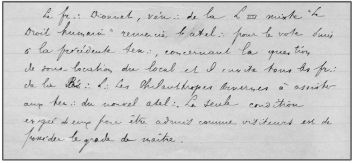 Le fr∴ Bonnet, vén∴ de la L∴ mixte "Le
Droit humain" remercie l'atel∴ pour le vote émis
à la précédente ten∴, concernant la question
de sous location du local et il invite tous les fr∴
de la R∴ L∴ Les Philanthropes Diverses à assister
aux ten∴ du nouvel atel∴. La seule condition
exigée d'eux pour être admis comme visiteurs est de
posséder le grade de maître.